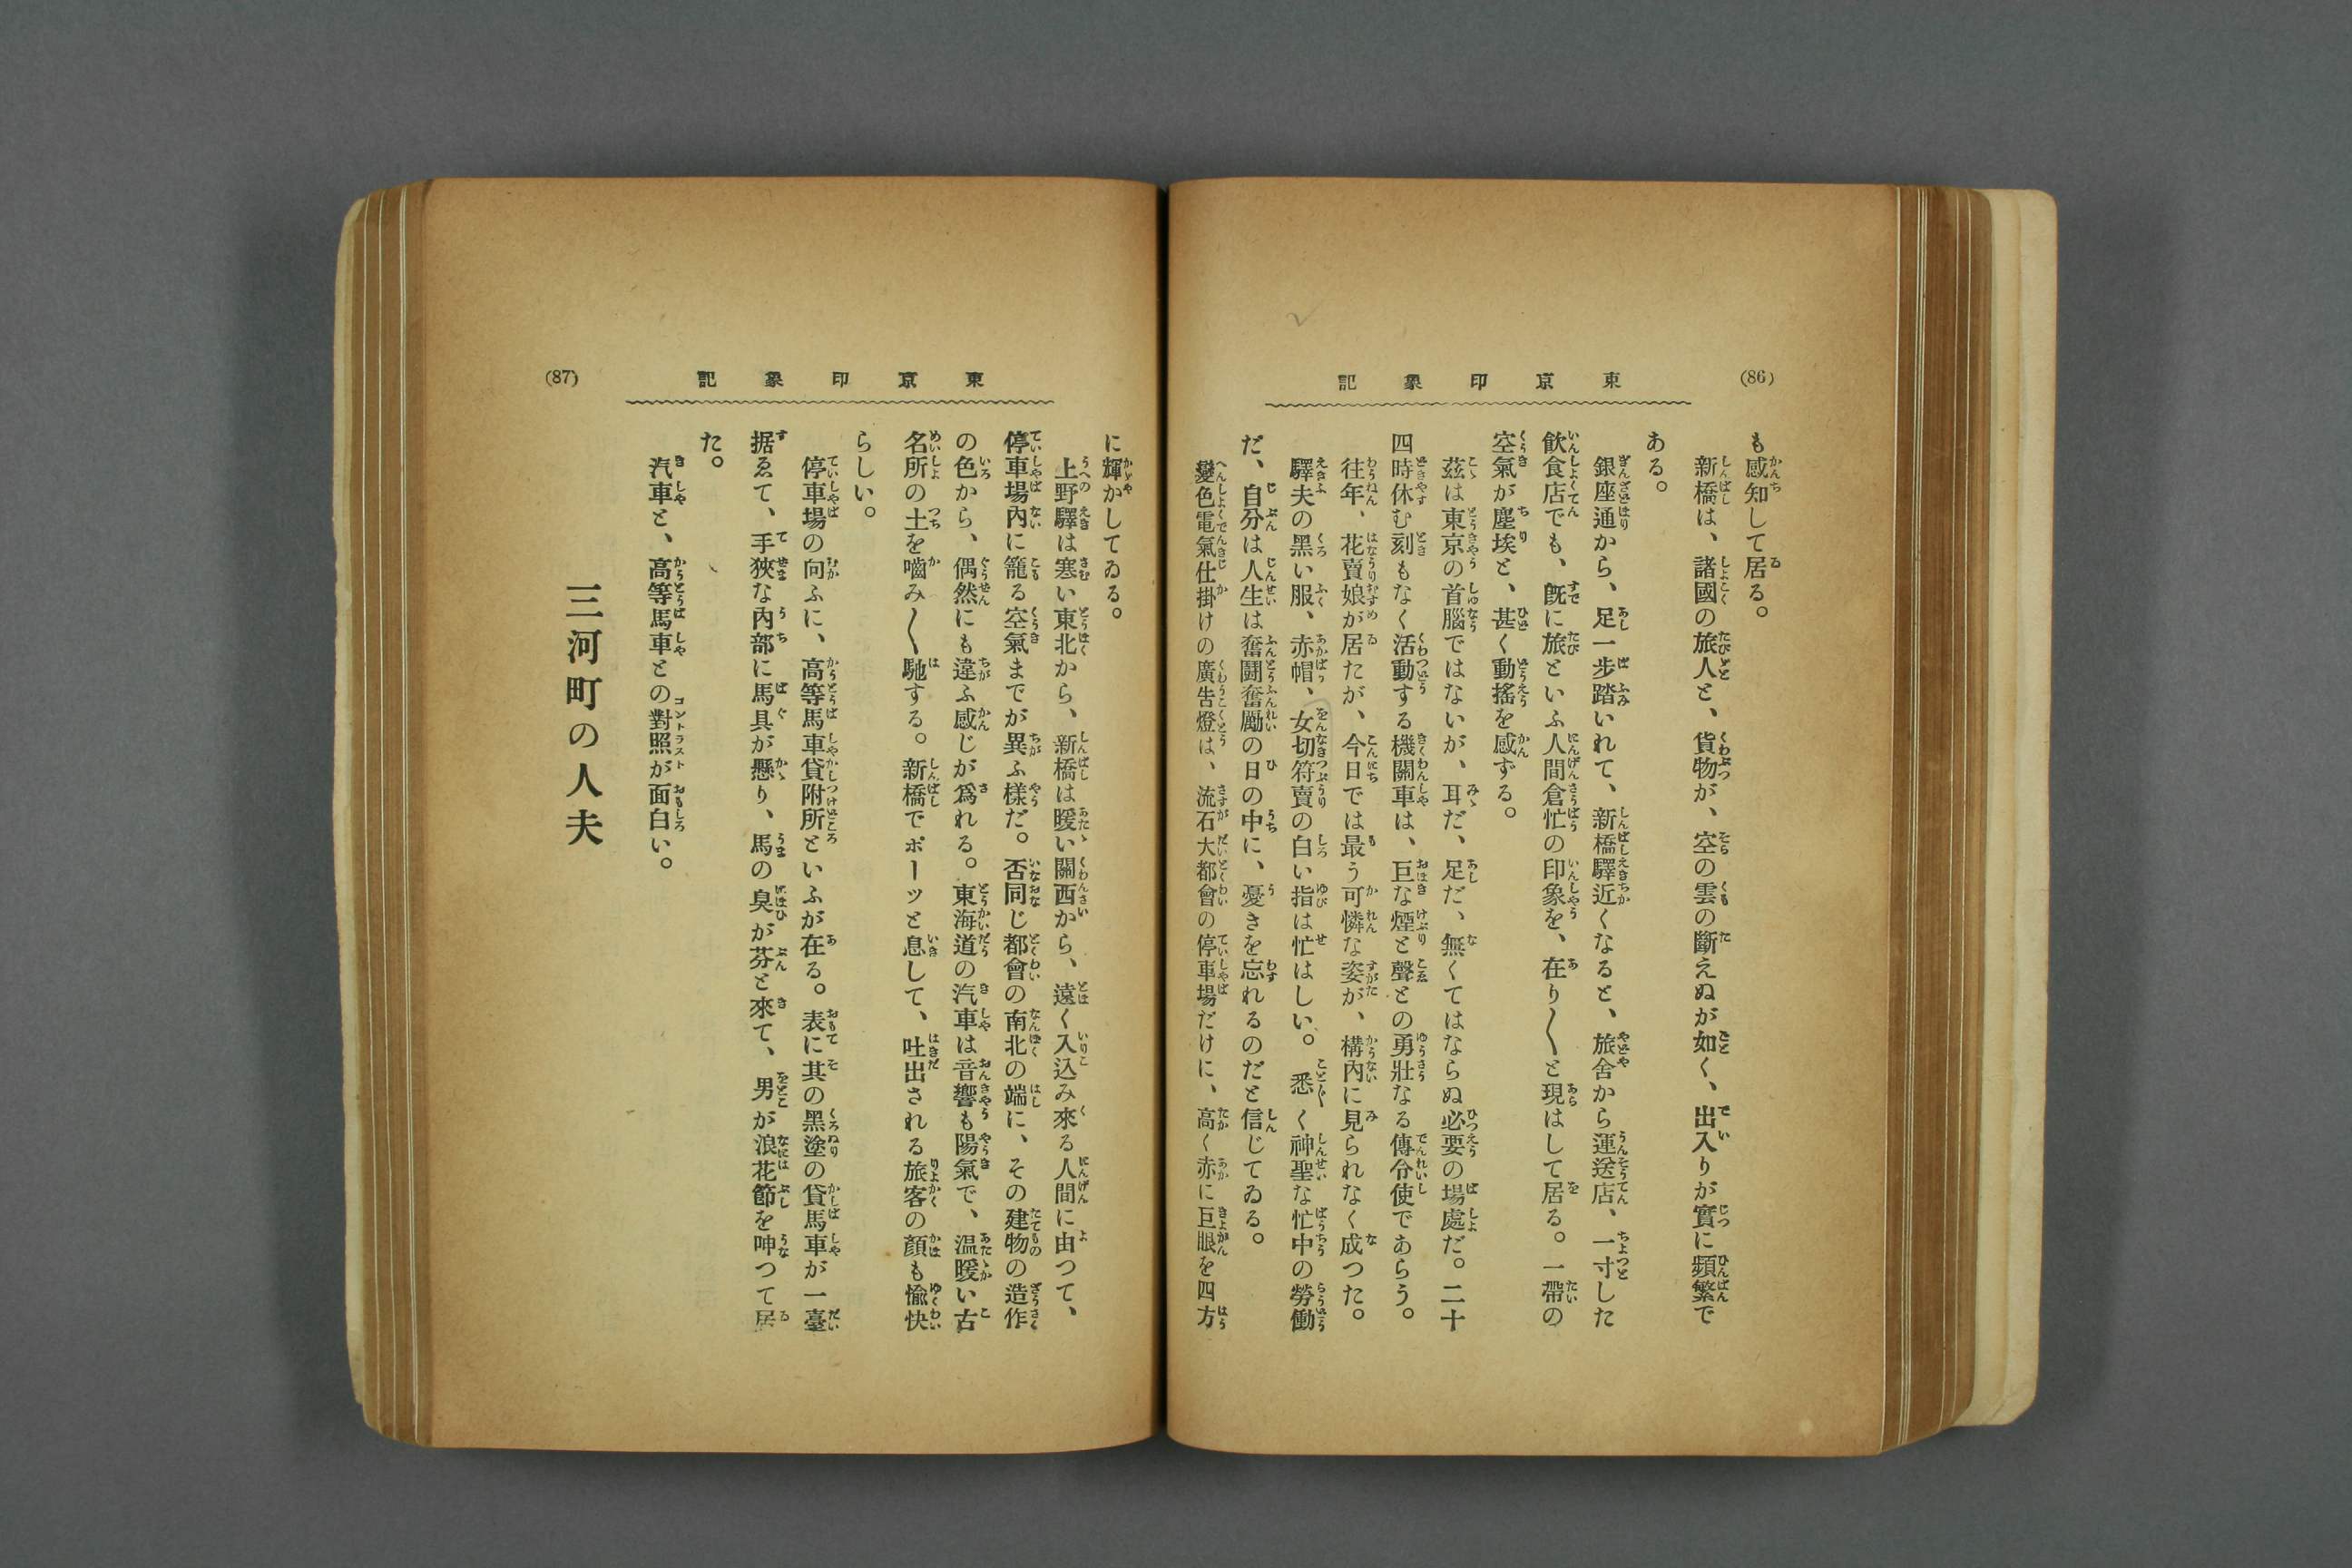 (86)
東京印象記
も感知して居る。
新橋は、諸國の旅人と、貨物が、空の雲の斷えぬが如く、出入りが實に頻繁で
ある。
銀座通から、足一步踏いれて、新橋驛近くなると、旅舍から運送店、一寸した
飮食店でも、旣に旅といふ人間倉忙の印象を、在り〱と現はして居る。一帶の
空氣が塵埃と、甚く動搖を感ずる。
茲は東京の首腦ではないが、耳だ、足だ、無くてはならぬ必要の場處だ。二十
四時休む刻もなく活動する機關車は、巨な煙と聲との勇壯なる傳令使であらう。
往年、花賣娘が居たが、今日では最う可憐な姿が、構內に見られなく成つた。
驛夫の黑い服、赤帽、女切符賣の白い指は忙はしい。悉く神聖な忙中の勞働
だ、自分は人生は奮鬪奮勵の日の中に、憂きを忘れるのだと信じてゐる。
變色電氣仕掛けの廣告燈は、流石大都會の停車場だけに、高く赤に巨眼を四方
(87)
東京印象記
に輝かしてゐる。
上野驛は寒い東北から、新橋は暖い關西から、遠く入込み來る人間に由つて、
停車場內に籠る空氣までが異ふ樣だ。否同じ都會の南北の端に、その建物の造作
の色から、偶然にも違ふ感じが爲れる。東海道の汽車は音響も陽氣で、溫暖い古
名所の土を嚙み〱馳する。新橋でポーッと息して、吐出される旅客の顏も愉快
らしい。
停車場の向ふに、高等馬車貸附所といふが在る。表に其の黑塗の貸馬車が一臺
据ゑて、手狹な內部に馬具が懸り、馬の臭が芬と來て、男が浪花節を呻つて居
た。
汽車と、高等馬車との對照が面白い。
三河町の人夫